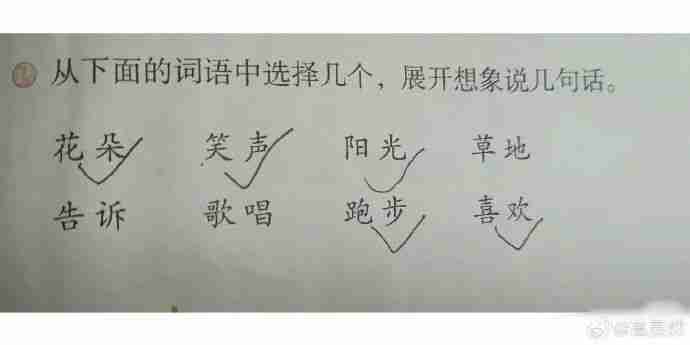 从下面的词语中选择几个，展开想象说几句话。
花朵 笑声 阳光 草地
告诉 歌唱 跑步 喜欢